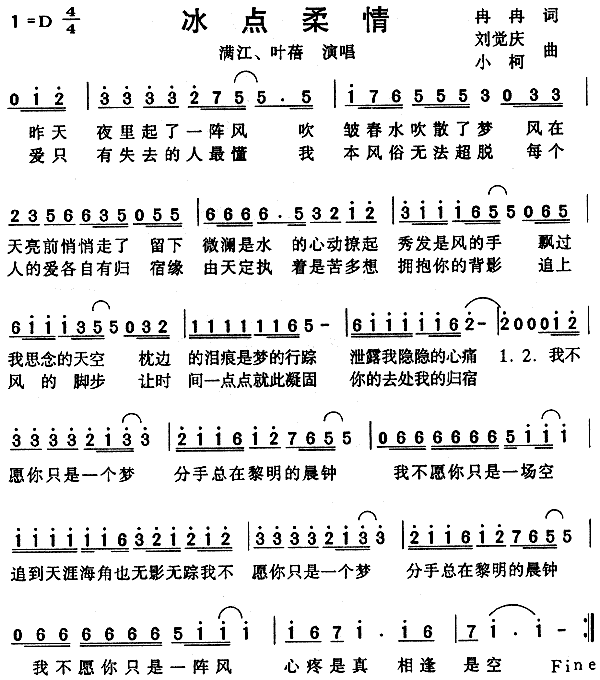 1=D 4/4 冰点柔情 冉冉 词
刘觉庆
满江、叶蓓 演唱 小柯 曲
0 1 2 | 3 3 3 3 2 7 5 5 . 5 | 1 7 6 5 5 5 3 0 3 3 |
昨天 夜里起了一阵风 吹 皱春水吹散了梦 风在
爱只 有失去的人最懂 我 本风俗无法超脱 每个
2 3 5 6 6 3 5 0 5 5 | 6 6 6 6 . 5 3 2 1 2 | 3 1 1 1 6 5 5 0 6 5 |
天亮前悄悄走了 留下 微澜是水 的心动撩起 秀发是风的手 飘过
人的爱各自有归 宿缘 由天定执 着是苦多想 拥抱你的背影 追上
6 1 1 1 3 5 5 0 3 2 | 1 1 1 1 1 1 1 6 5 - | 6 1 1 1 1 1 6 2 - | 2 0 0 0 1 2 |
我思念的天空 枕边 的泪痕是梦的行踪 泄露我隐隐的心痛 1. 2. 我不
风 的 脚步 让时 间一点点就此凝固 你的去处我的归宿
3 3 3 3 2 1 3 3 | 2 1 1 6 1 2 7 6 5 5 | 0 6 6 6 6 6 6 5 1 1 1 |
愿你只是一个梦 分手总在黎明的晨钟 我不愿你只是一场空
1 1 1 1 1 1 6 3 2 1 2 1 2 | 3 3 3 3 2 1 3 3 | 2 1 1 6 1 2 7 6 5 5 |
追到天涯海角也无影无踪我不 愿你只是一个梦 分手总在黎明的晨钟
0 6 6 6 6 6 6 5 1 1 1 | 1 6 7 1 . 1 6 | 7 1 . - :||
我不愿你只是一阵风 心疼是真 相逢 是空 Fine